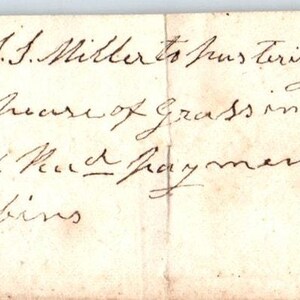 S. S. Miller to pastering
house of Grass in
Recd payment
bins